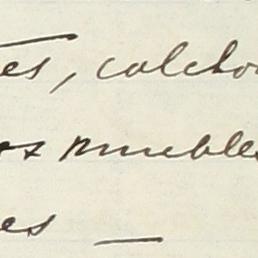 es, colcho
os muebles
es —